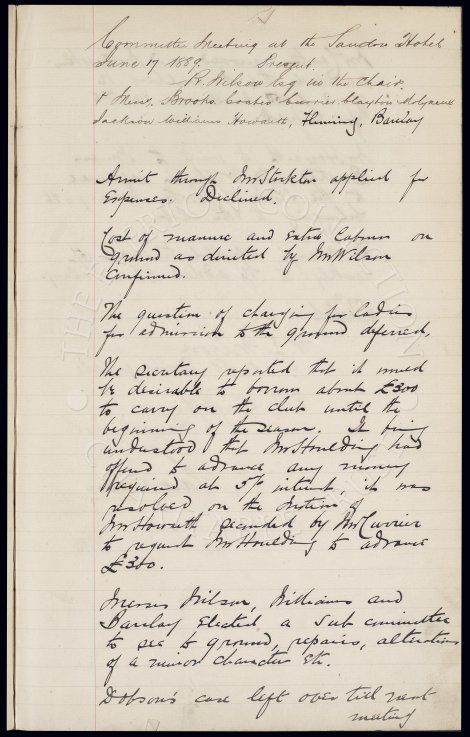 Committee Meeting at the Sandon Hotel
June 17 1889. Present.
R. Wilson Esq in the Chair
& Mess. Brooks Coates Currier Clayton Molyneux
Jackson Williams Howarth, Fleming, Barclay
through Mr Stockton applied for
Expenses. Declined.
Cost of manure and Extra Labour on
ground as directed by Mr Wilson
Confirmed.
The question of charging for Ladies
for admission to the ground deferred.
The secretary reported that it would
be desirable to borrow about £300
to carry on the club until the
beginning of the season. It being
understood that Mr Houlding had
offered to advance any money
required at 5% interest, it was
resolved on the motion of
Mr Howarth seconded by Mr Currier
to request Mr Houlding to advance
£300.
Messrs Wilson, Williams and
Barclay Elected a Sub committee
to see to ground, repairs, alterations
of a minor character Etc.
Dobson's case left over till next
meeting